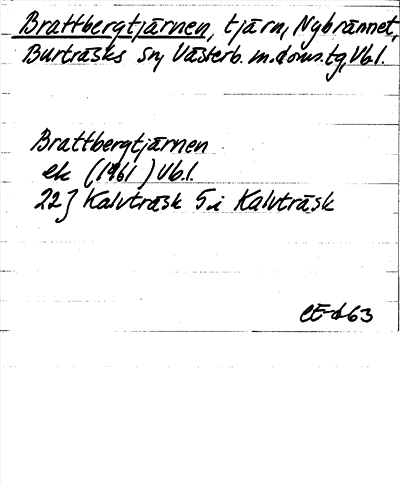 Brattbergtjärnen, tjärn, Nybrännet,
Burträsks sn, Västerb. m. doms. tg, Vb.l.
Brattbergtjärnen
ek (1961) Vb.l.
22J Kalvträsk 5i Kalvträsk